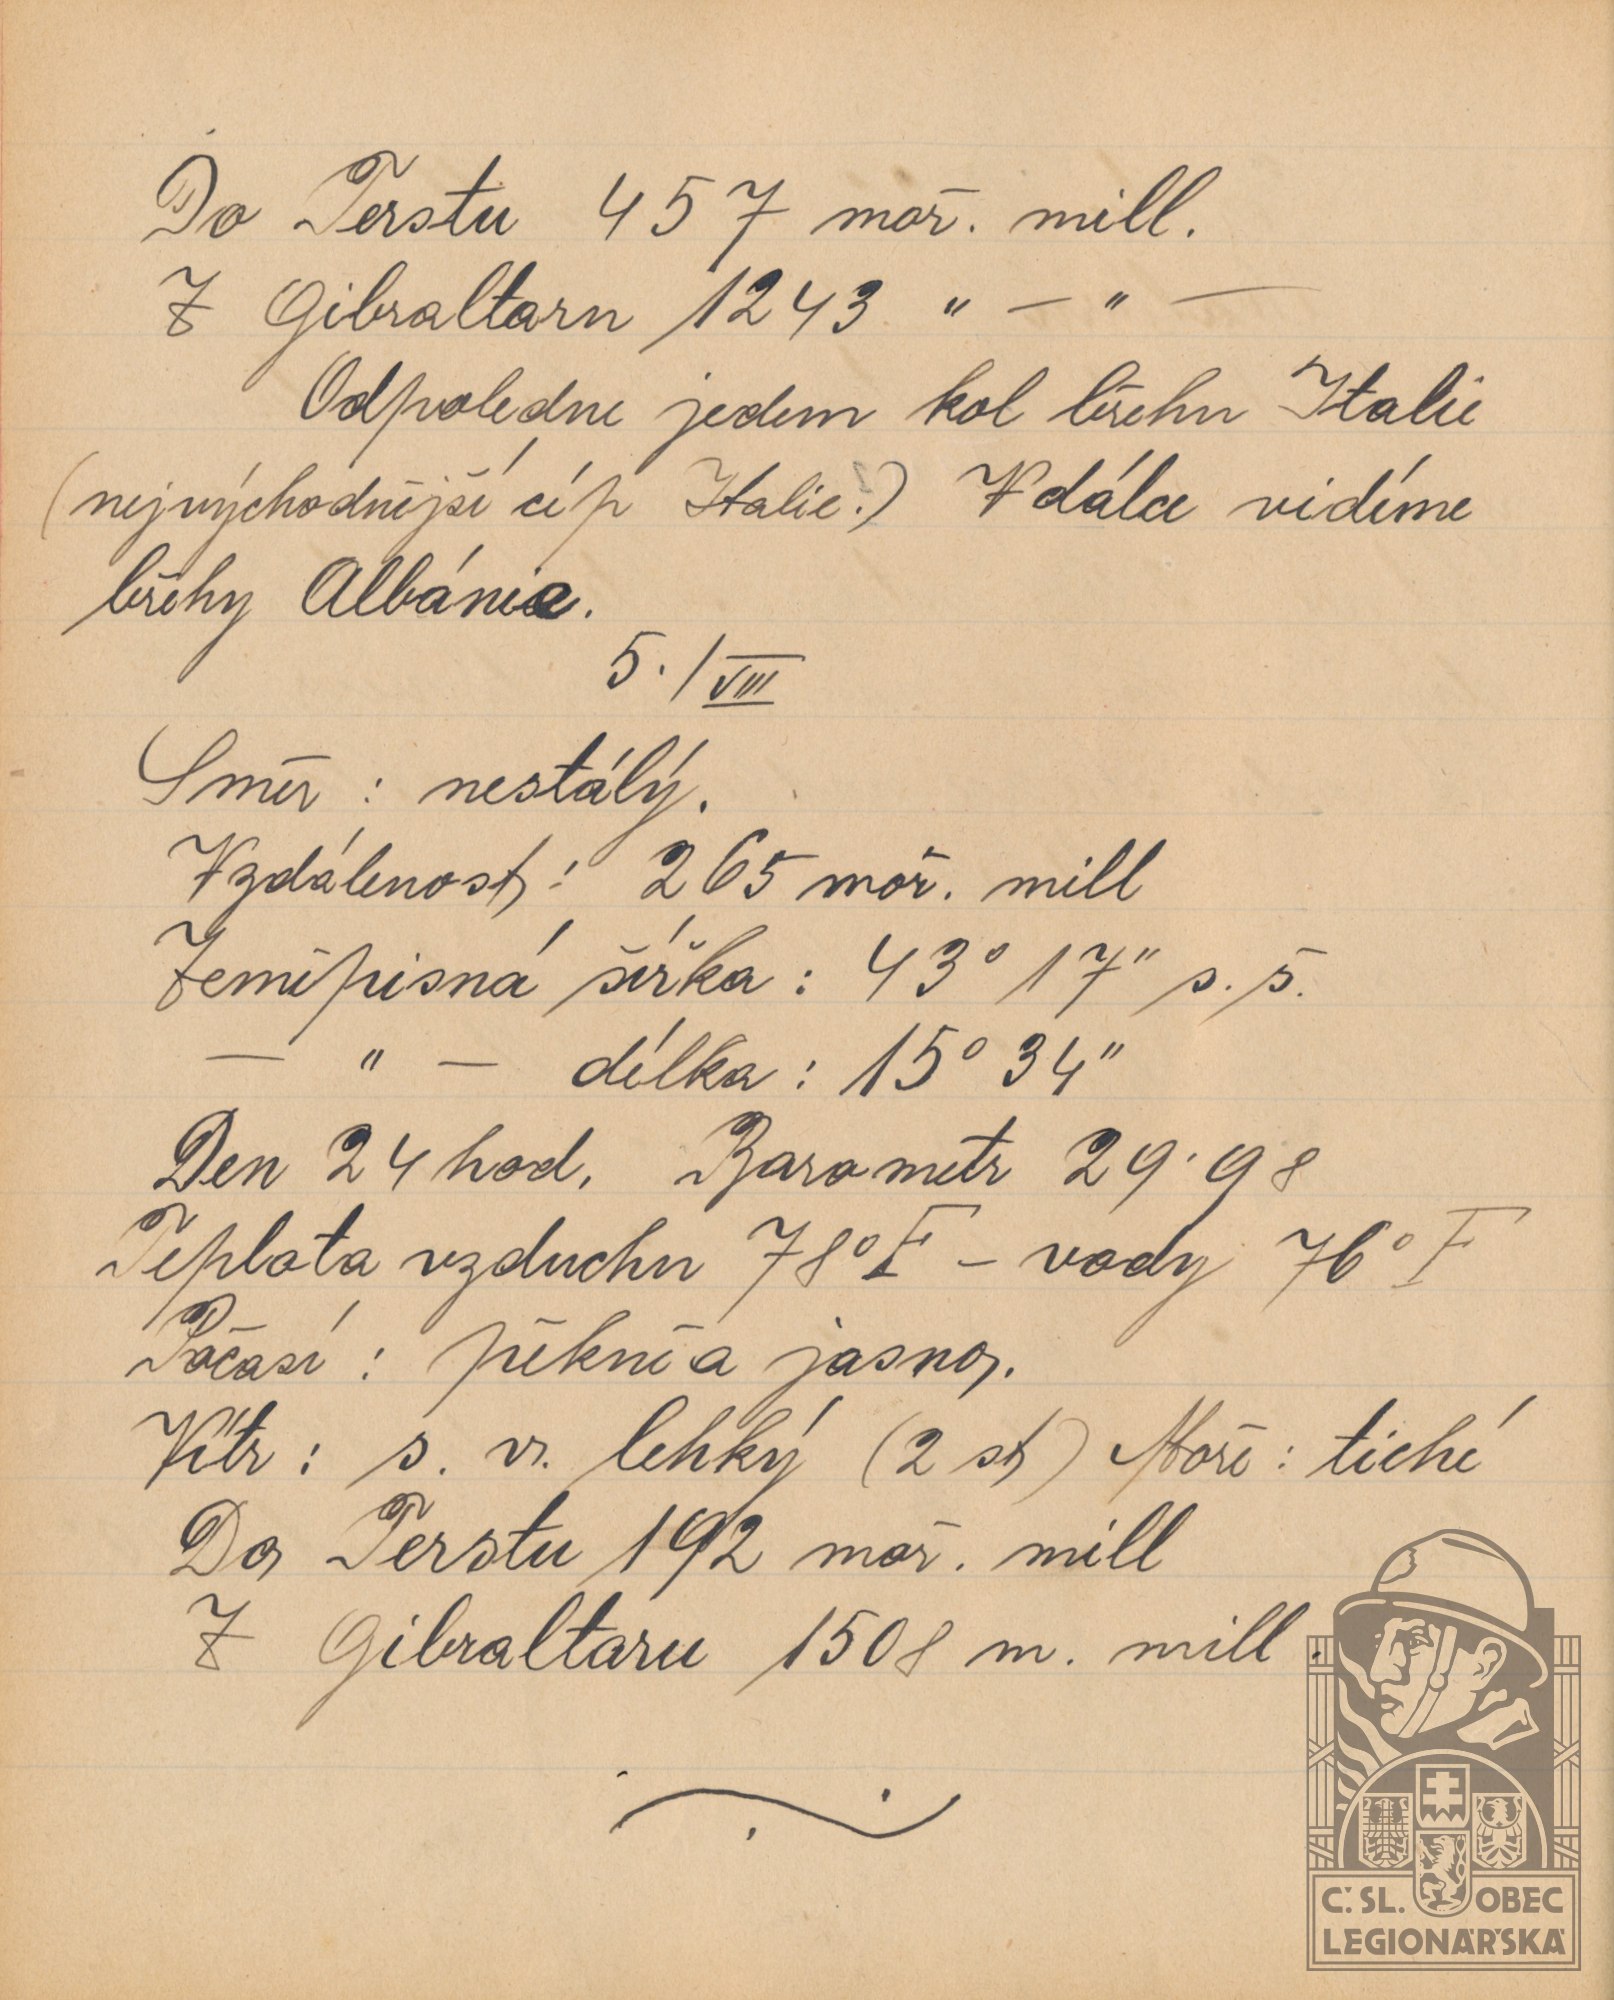 Do Terstu 457 moř. mill.
Z Gibraltaru 1243 " — " —
Odpoledne jedem kol břehu Italie
(nejvýchodnější cíp Italie.) V dálce vidíme
břehy Albánie.
5./VIII
Směr : nestálý.
Vzdálenost: 265 moř. mill
Zeměpisná šířka : 43° 17" s. š.
— " — délka : 15° 34"
Den 24 hod. Barometr 29·98
Teplota vzduchu 78° F — vody 76° F
Počasí : pěkně a jasno.
Vítr : s. v. lehký (2 st) Moře : tiché
Do Terstu 192 moř. mill
Z Gibraltaru 1508 m. mill.
Č. SL. OBEC
LEGIONÁŘSKÁ